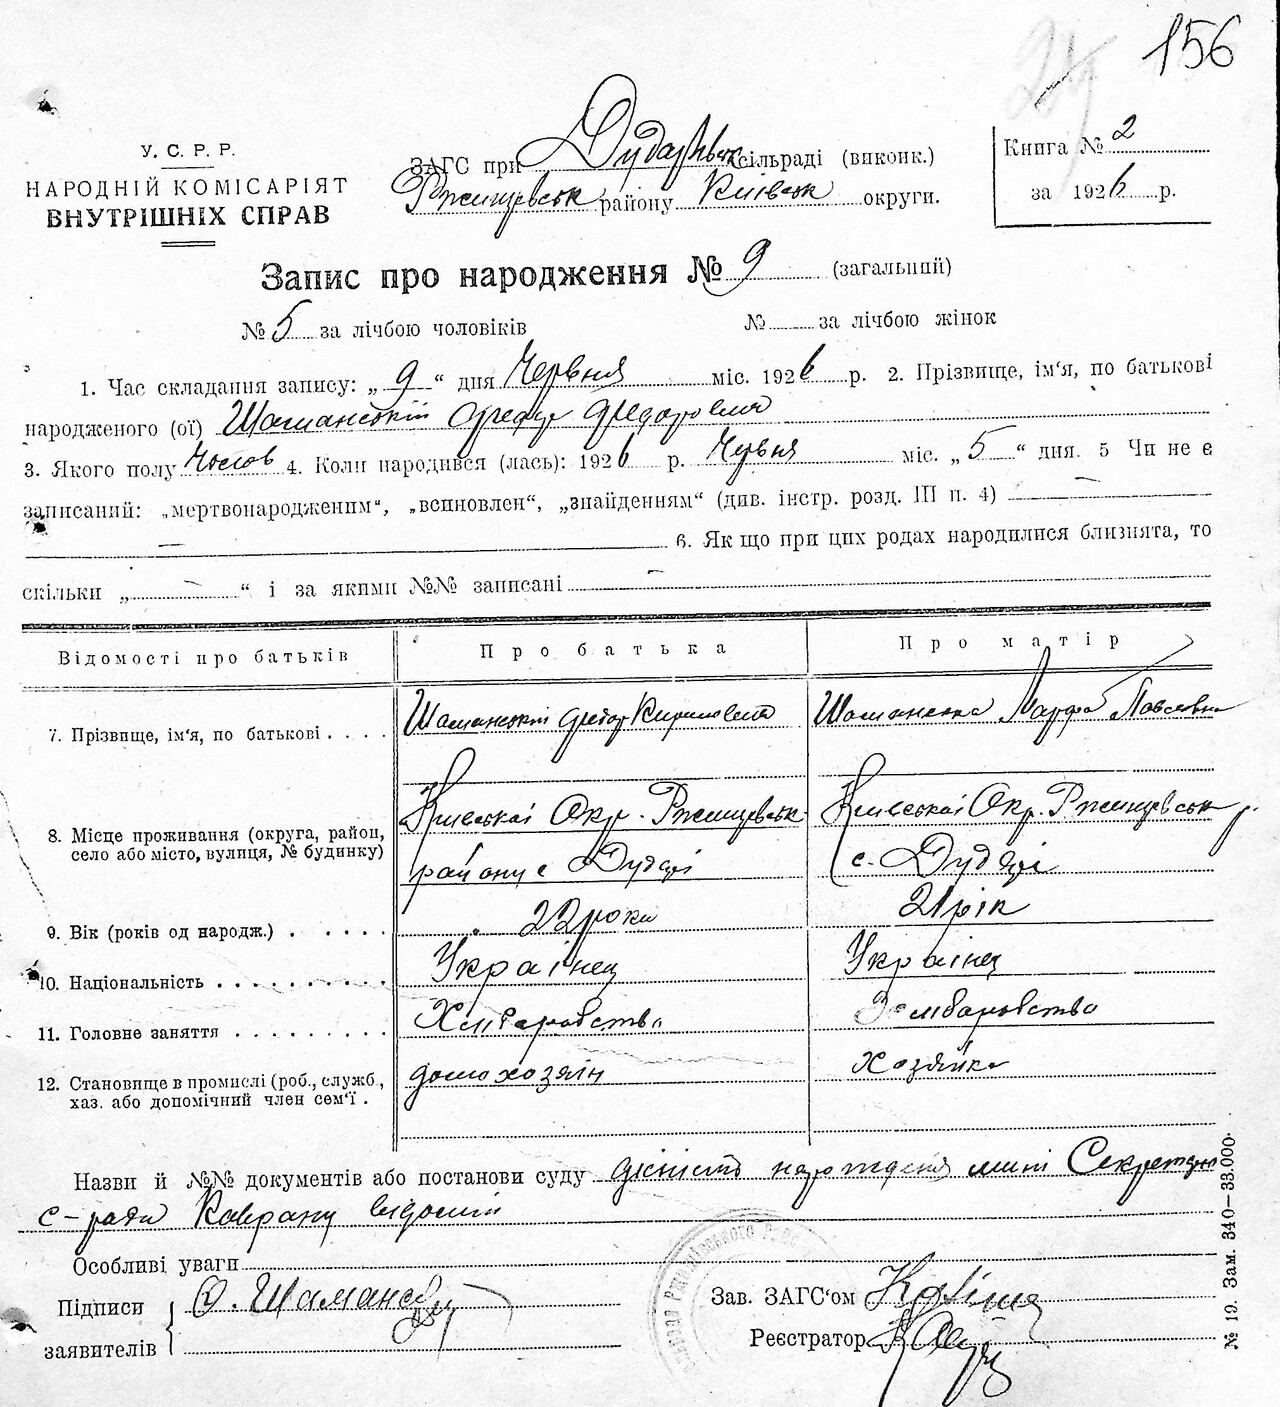 156
У. С. Р. Р.
НАРОДНІЙ КОМІСАРІЯТ
ВНУТРІШНІХ СПРАВ
ЗАГС при сільраді (виконк.)
Ржищевськ району Київськ округи.
Книга № 2
за 1926 р.
Запис про народження № 9 (загальний)
№ 5 за лічбою чоловіків № за лічбою жінок
1. Час складання запису: „ 9 “ дня Червня міс. 1926 р. 2. Прізвище, ім'я, по батькові
народженого (ої) Шаманський Федоровича
3. Якого полу 4. Коли народився (лась): 1926 р. Червня міс. „ 5 “ дня. 5 Чи не є
записаний: „мертвонародженим“, „всиновлен“, „знайденням“ (див. інстр. розд. III п. 4) —
— 6. Як що при цих родах народилися близнята, то
скільки „ — “ і за якими №№ записані —
Відомості про батьків Про батька Про матір
7. Прізвище, ім'я, по батькові . . . . Шаманський Федор Кирилович Шаманська Марфа Павловна
8. Місце проживання (округа, район, село або місто, вулиця, № будинку)
Київської Окр. Ржищевськ
району с Дударі
Київської Окр. Ржищевськ р.
с. Дударі
9. Вік (років од народж.) . . . . . 22 роки 21 рік
10. Національність . . . . . . . . . . Українец Українец
11. Головне заняття . . . . . . . . . Хліборобство
12. Становище в промислі (роб., служб., домохозяїн Хозяйка
хаз. або допомічний член сем'ї .
Назви й №№ документів або постанови суду дісність народження мині Секретарю
с-ради відомий
Особливі уваги
Підписи Ф. Шаманський
заявителів
Зав. ЗАГС'ом
Реєстратор
№ 19. Зам. 340—33.000.